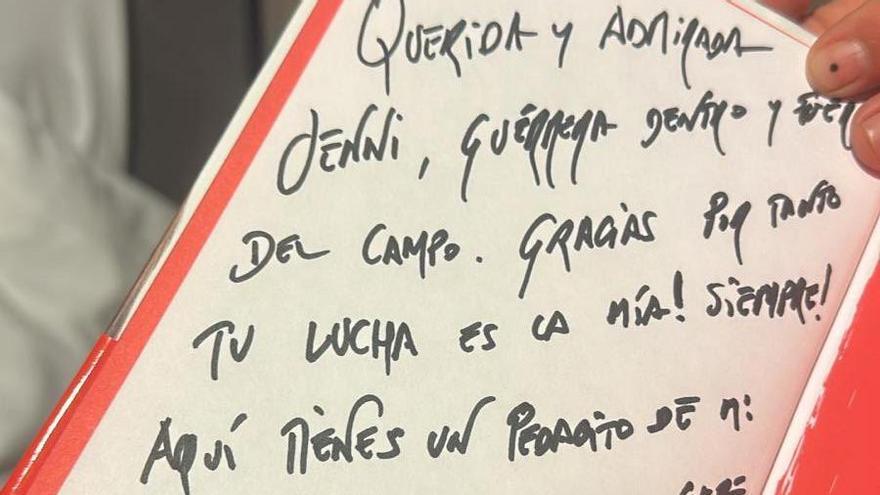 QUERIDA Y ADMIRADA
JENNI, GUERRERA DENTRO Y FUER
DEL CAMPO. GRACIAS POR TANTO
TU LUCHA ES LA MÍA! SIEMPRE!
AQUÍ TIENES UN PEDACITO DE MI: